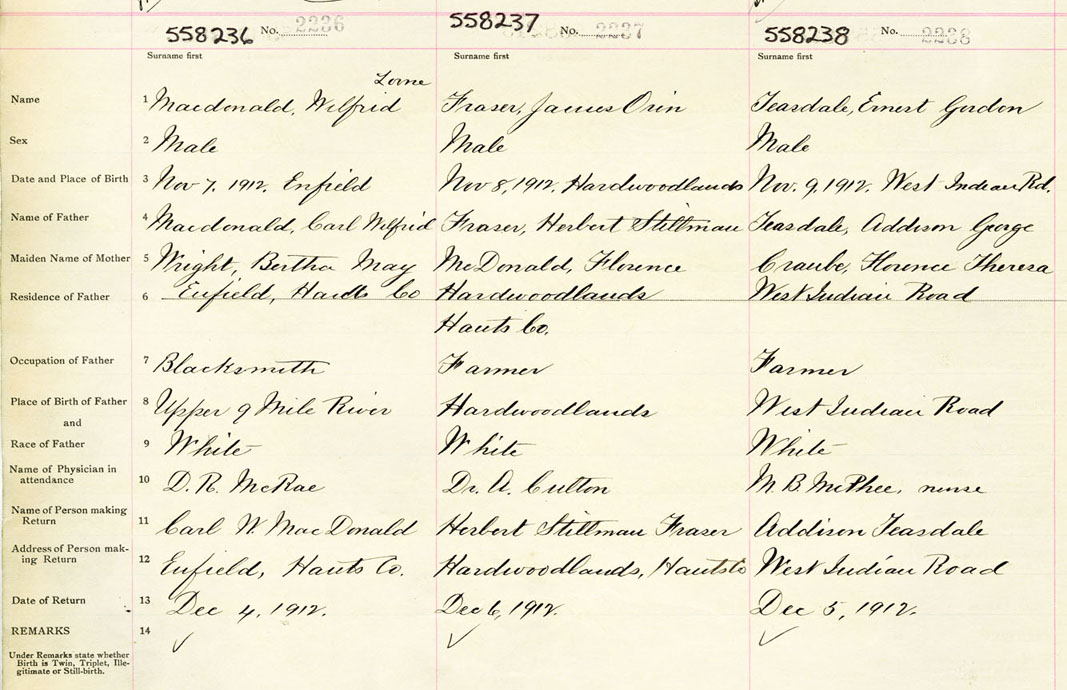 558236 No. 2236 558237 No. 2237 558238 No. 2238
Surname first Surname first Surname first
Lorne
Name 1 Macdonald, Wilfrid Fraser, James Orin Teasdale, Ernest Gordon
Sex 2 Male Male Male
Date and Place of Birth 3 Nov 7, 1912, Enfield Nov 8, 1912, Hardwoodlands Nov. 9, 1912. West Indian Rd.
Name of Father 4 Macdonald, Carl Wilfrid Fraser, Herbert Stillman Teasdale, Addison George
Maiden Name of Mother 5 Wright, Bertha May McDonald, Florence Theresa
Residence of Father 6 Enfield, Hants Co Hardwoodlands West Indian Road
Hants Co.
Occupation of Father 7 Blacksmith Farmer Farmer
Place of Birth of Father 8 Upper 9 Mile River Hardwoodlands West Indian Road
and
Race of Father 9 White White White
Name of Physician in
attendance 10 D. R. McRae Dr. A. Culton M. B. McPhee, nurse
Name of Person making
Return 11 Carl W. MacDonald Herbert Stillman Fraser Addison Teasdale
Address of Person mak-
ing Return 12 Enfield, Hants Co. Hardwoodlands, Hants Co West Indian Road
Date of Return 13 Dec 4, 1912. Dec 6, 1912. Dec 5, 1912.
REMARKS 14
Under Remarks state whether
Birth is Twin, Triplet, Ille-
gitimate or Still-birth.